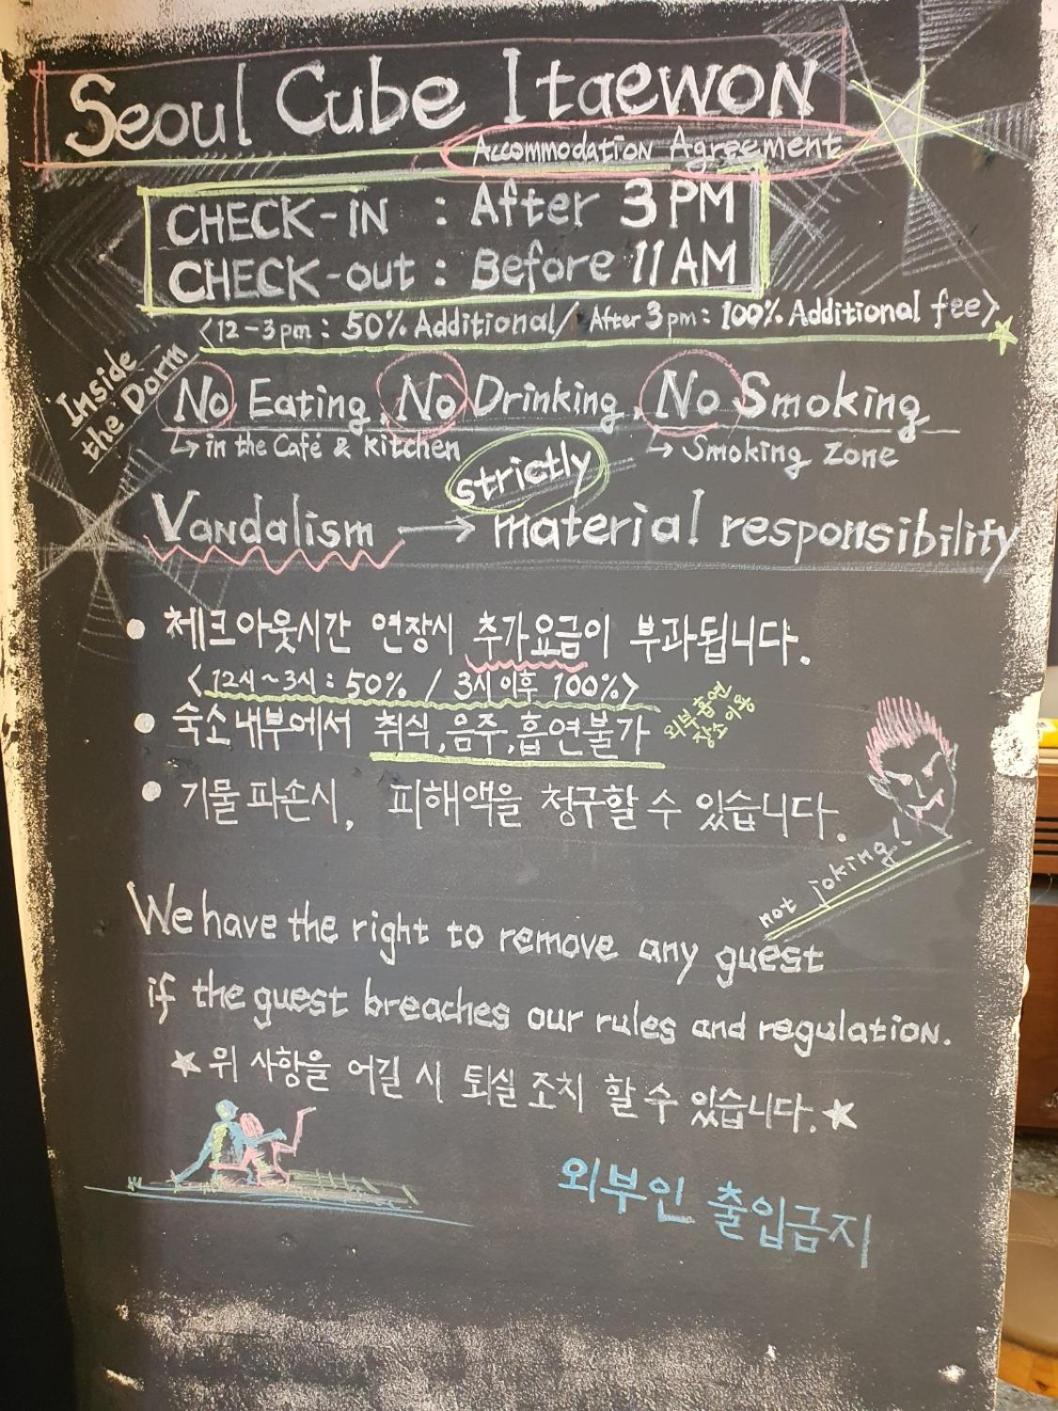 Seoul Cube Itaewon
Accommodation Agreement
CHECK-IN : After 3 PM
CHECK-out : Before 11 AM
<12-3pm : 50% Additional / After 3pm : 100% Additional fee>
Inside
the Dorm
No Eating, No Drinking, No Smoking
↳ in the Café & kitchen ↳ Smoking Zone
strictly
Vandalism → material responsibility
• 체크아웃시간 연장시 추가요금이 부과됩니다.
<12시~3시 : 50% / 3시 이후 100%>
• 숙소내부에서 취식, 음주, 흡연불가
외부 흡연
장소 이용
• 기물파손시, 피해액을 청구할 수 있습니다.
not joking!
We have the right to remove any guest
if the guest breaches our rules and regulation.
★ 위 사항을 어길 시 퇴실 조치 할 수 있습니다. ★
외부인 출입금지